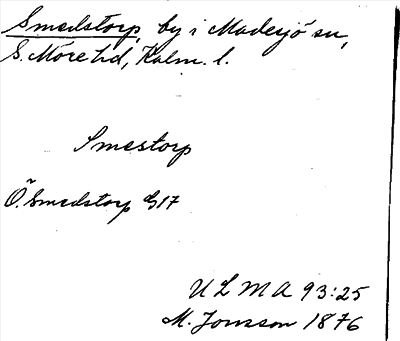 Smedstorp, by i Madesjö sn,
S. Möre hd, Kalm. l.
Smestorp
Ö. Smedstorp G17
ULMA 93:25
M. Jonsson 1876